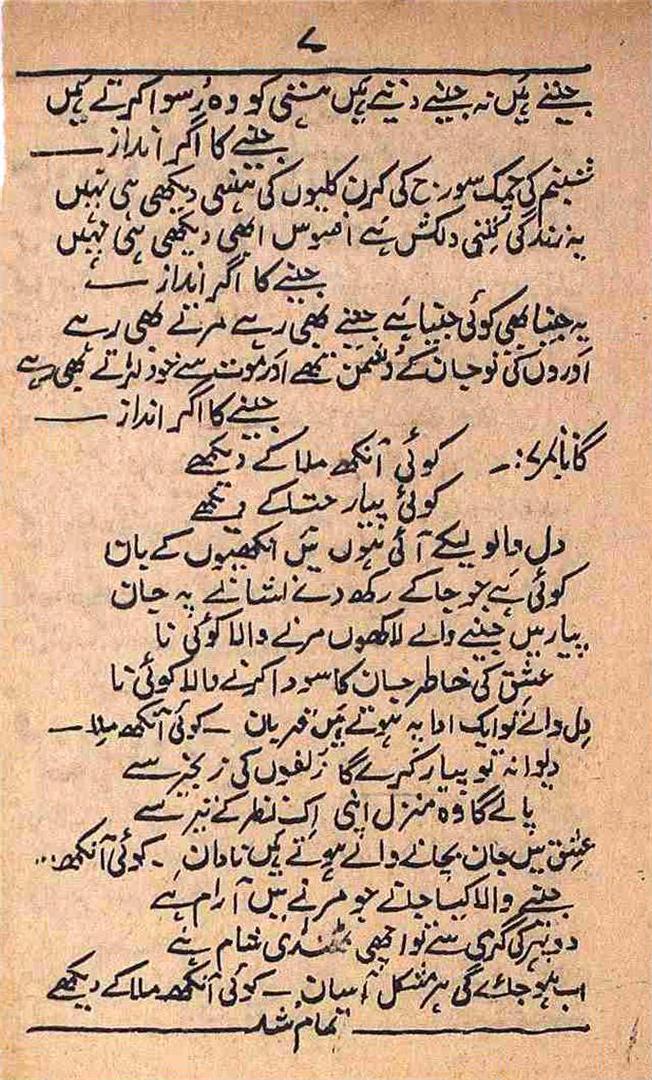 ۷
جیتے ہیں نہ جینے دیتے ہیں ہستی کو وہ رسوا کرتے ہیں
جینے کا اگر انداز ——
شبنم کی چمک سورج کی کرن کلیوں کی ہنسی دیکھی ہی نہیں
یہ زندگی کتنی دلکش ہے افسوس ابھی دیکھی ہی نہیں
جینے کا اگر انداز ——
یہ جینا بھی کوئی جینا ہے جیتے بھی رہے مرتے بھی رہے
اوروں کی تو جان کے دشمن تھے اور موت سے خود لڑتے بھی رہے
جینے کا اگر انداز ——
گانا نمبر ۷:۔ کوئی آنکھ ملا کے دیکھے
کوئی پیار جتا کے دیکھے
دل والو لیکے آئی ہوں میں انکھیوں کے بان
کوئی ہے جو جا کے رکھ دے نشانے پہ جان
پیار میں جینے والے لاکھوں مرنے والا کوئی نا
عشق کی خاطر جان کا سودا کرنے والا کوئی نا
دل والے تو ایک ادا پہ ہوتے ہیں قربان ۔ کوئی آنکھ ملا ——
دیوانہ تو پیار کرے گا زلفوں کی زنجیر سے
پالے گا وہ منزل اپنی اک نظر کے تیر سے
عشق میں جان بچانے والے ہوتے ہیں نادان ۔ کوئی آنکھ...
جینے والا کیا جانے جو مرنے میں آرام ہے
دوپہر کی گرمی سے تو اچھی ٹھنڈی شام ہے
اب ہو جائے گی ہر مشکل آسان ۔ کوئی آنکھ ملا کے دیکھے
تمام شد